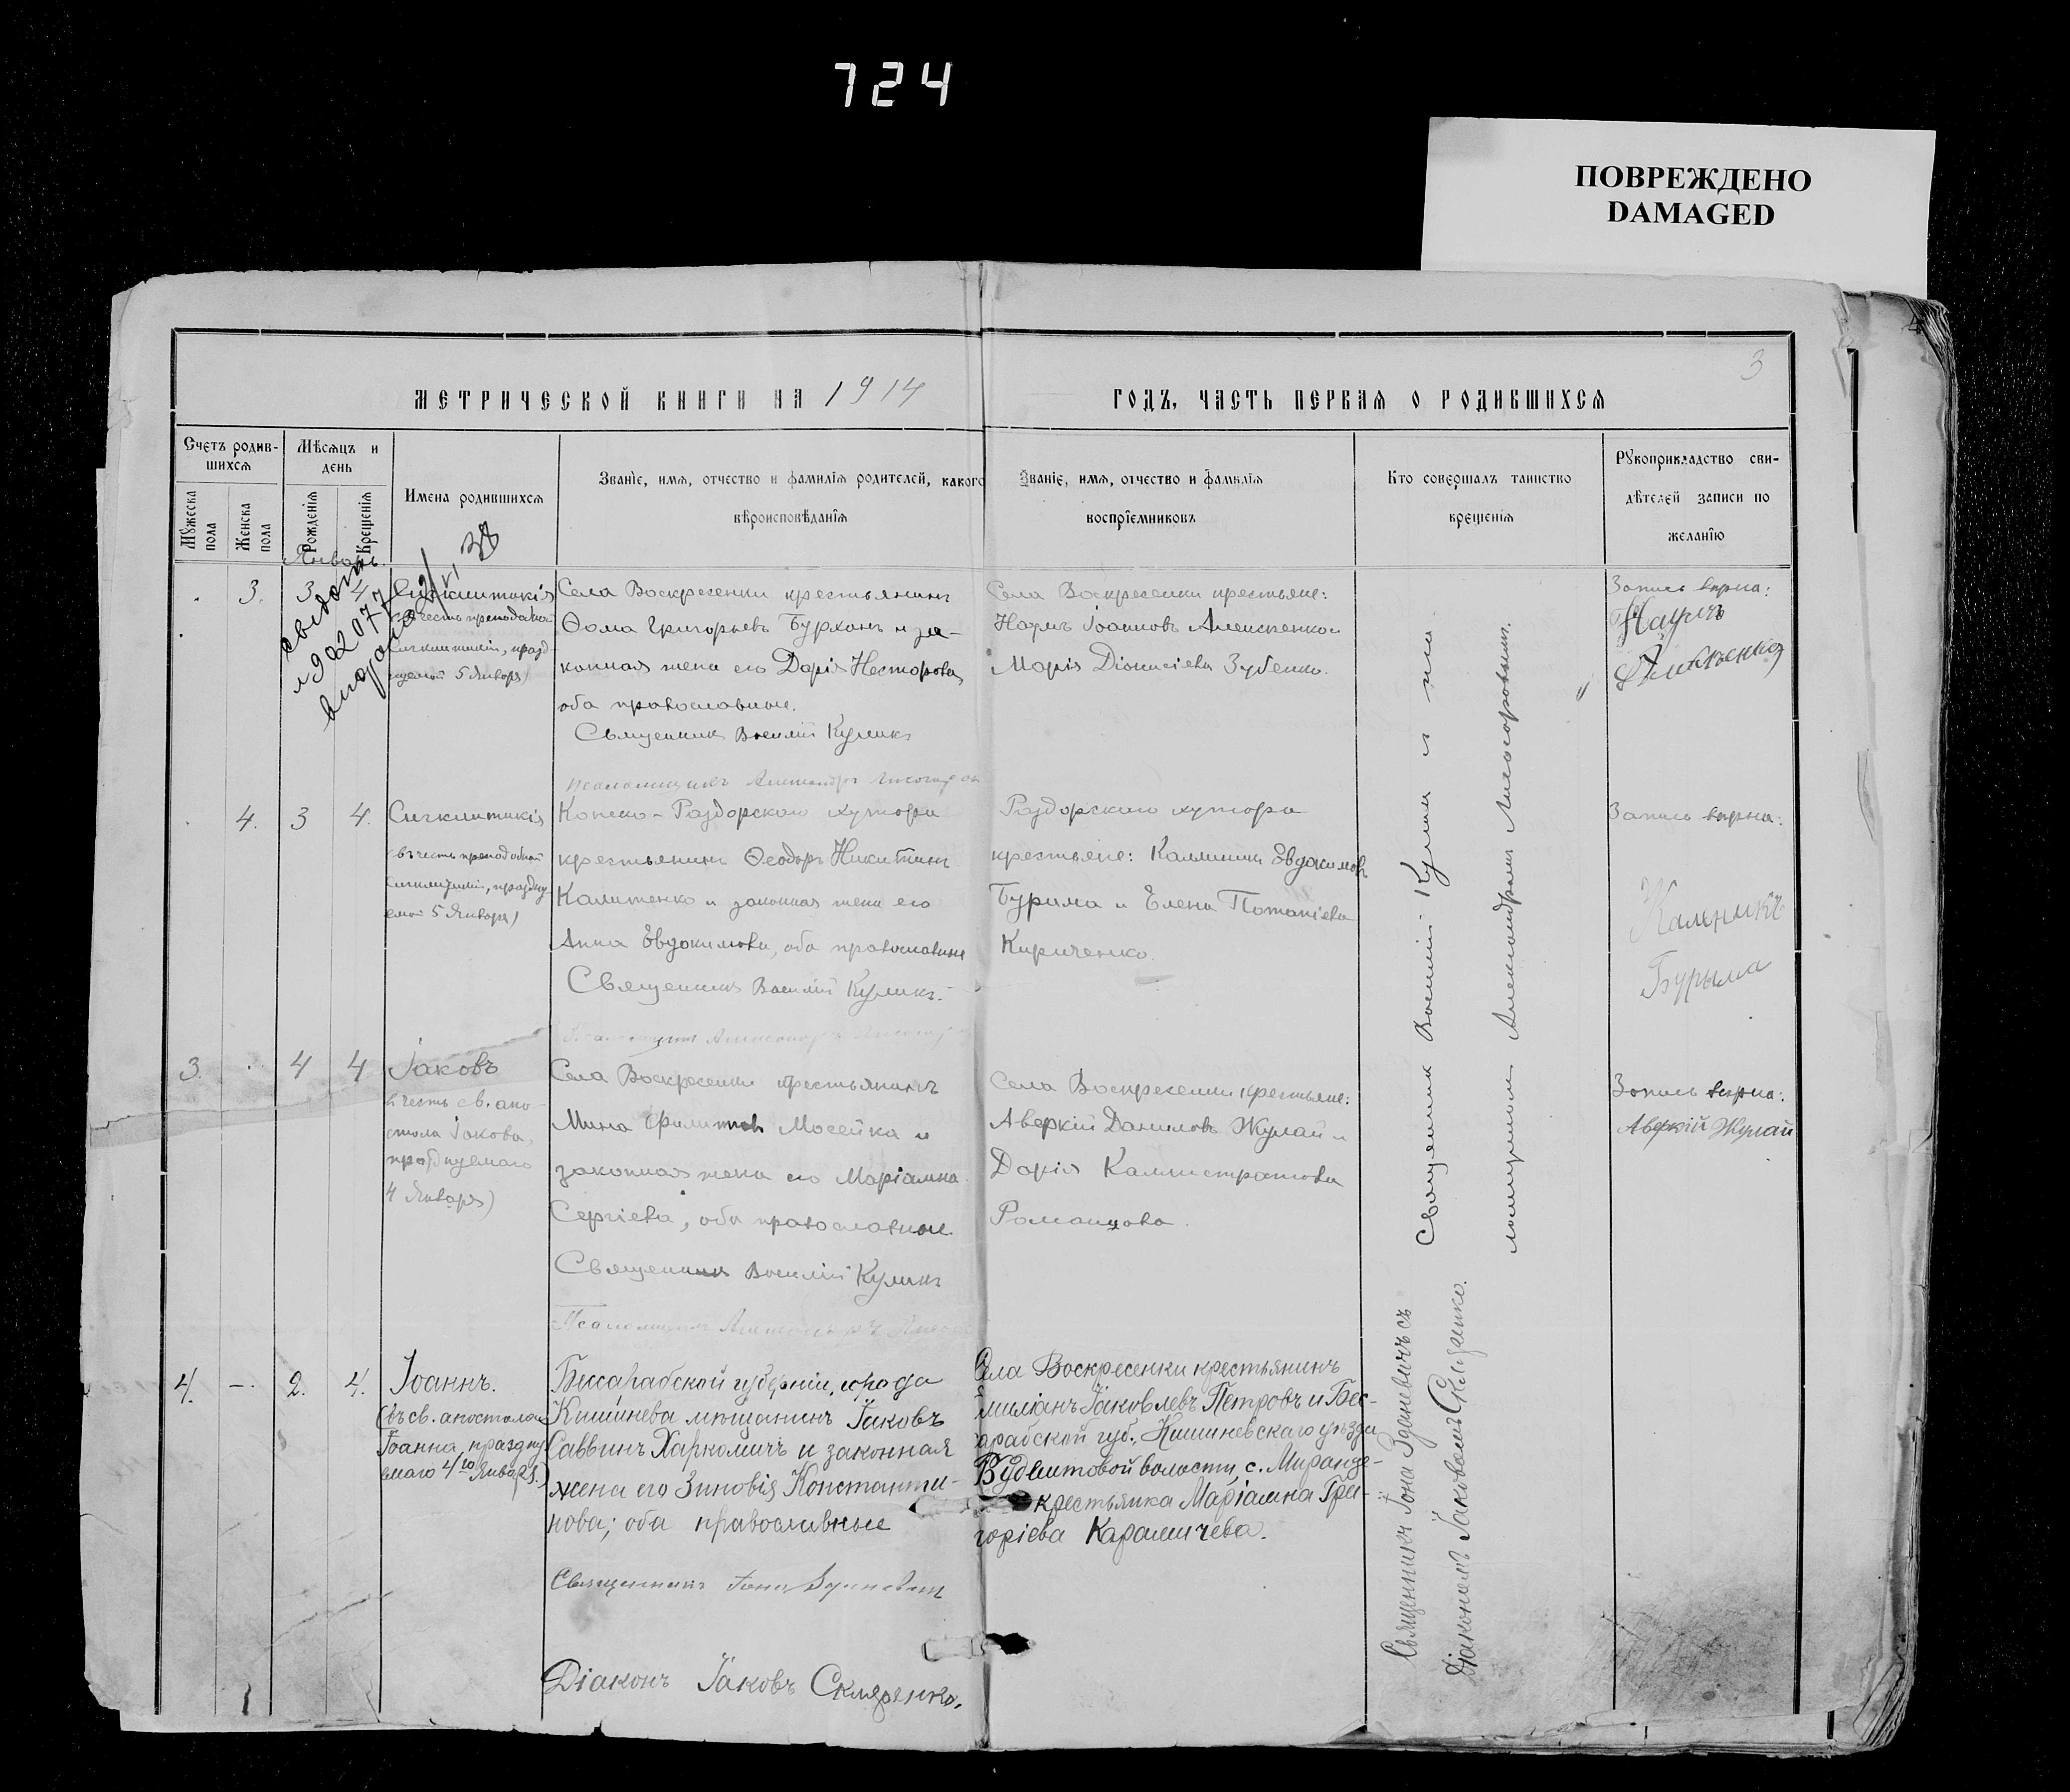 724
ПОВРЕЖДЕНО
DAMAGED
3
МЕТРИЧЕСКОЙ КНИГИ НА 1914
ГОДЪ, ЧАСТЬ ПЕРВАЯ О РОДИВШИХСЯ
Счетъ родив-
шихся
Мужеска
пола
Женска
пола
Мѣсяцъ и
день
Рожденія
Крещенія
Имена родившихся
Званіе, имя, отчество и фамилія родителей, какого
вѣроисповѣданія
Званіе, имя, отчество и фамилія
воспріемниковъ
Кто совершалъ таинство
крещенія
Рукоприкладство сви-
дѣтелей записи по
желанію
Январь
3. 3 4
Сигклитикія
въ честь преподобной
Сигклитикіи, празд-
нуемой 5 Января)
Села Воскресенки крестьянинъ
Ѳома Григорьевъ Бурхонъ и за-
конная жена его Дарія Несторова,
оба православные.
Священникъ Василій Куликъ
Псаломщикъ Александръ Лисогоровъ
Села Воскресенки крестьяне:
Наумъ Іоанновъ Алексѣенко и
Марія Діонисіева Зубенко.
Запись вѣрна:
Наумъ
Алексѣенко
4. 3 4.
Сигклитикія
(въ честь преподобной
Сигклитикіи, праздну-
емой 5 Января)
Конско-Раздорскаго хутора
крестьянинъ Ѳеодоръ Никитинъ
Калитенко и законная жена его
Анна Евдокимова, оба православные
Священникъ Василій Куликъ.
Псаломщикъ Александръ
Раздорскаго хутора
крестьяне: Каллиникъ Евдокимовъ
Бурима и Елена Потапіева
Кириченко.
Запись вѣрна:
Калѣникъ
Бурыма
3. 4 4
Іаковъ
въ честь св. апо-
стола Іакова,
празднуемаго
4 Января)
Села Воскресенки крестьянинъ
Мина Филиповъ Мосейка и
законная жена его Маріамна
Сергіева, оба православные
Священникъ Василій Куликъ
Псаломщикъ Александръ
Села Воскресенки крестьяне:
Аверкій Даниловъ Жулай и
Дарія Каллистратова
Романцова.
Запись вѣрна:
Аверкій Жулай
Священникъ Василій Куликъ съ пса-
ломщикомъ Александромъ Лисогоровымъ.
4. -. 2. 4.
Іоаннъ.
(въ св. апостола
Іоанна, праздну
емаго 4го Января.)
Бессарабской губерніи, города
Кишинева мѣщанинъ Іаковъ
Саввинъ Харкомичъ и законная
жена его Зиновія Константи-
нова; оба православные
Священникъ Іона Зданевичъ
Діаконъ Іаковъ Скляренко.
Села Воскресенки крестьянинъ
миліанъ Іаковлевъ Петровъ и Бес-
арабской губ., Кишиневскаго уѣзда
волости, с.
крестьянка Маріамна Гри-
горіева Карамичева.
Священникъ Іона Зданевичъ съ
Діакономъ Іаковомъ Скляренко.